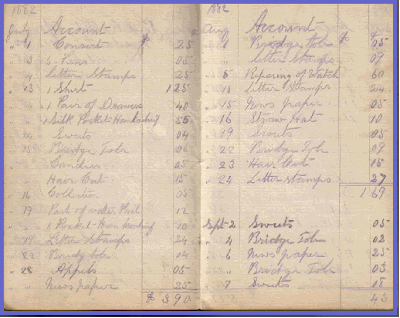 1882
Account
July 1 Consert $ 25
" 3 Pens 05
" 4 Letter Stamps 25
" 13 1 Shirt 1 25
" 1 Pair of Drawers 40
" 1 Silk Pocket Handkerchief 55
" 14 Sweets 04
" 15 Bridge Tole 06
" Candies 05
" Hair Cut 15
16 Collection 05
19 Pail 12
" 1 Pocket Handkerchief 10
" 19 Letter Stamps 24
" 22 Bridge tole 14
" 28 Appels 05
" News paper 25
$ 3 90
1882
Account
Aug 1 Bridge Tole $ 05
" " Letter Stamps 09
" 5 Repering of Watch 60
" 13 Letter Stamps 24
" 15 News paper 05
" 16 Straw Hat 10
" 19 Sweets 05
" 22 Bridge Tole 09
" 23 Hair Cut 15
" 22 Letter stamps 27
1 69
Sept 2 Sweets 05
" 4 Bridge Tole 02
" 6 News paper 25
" " Bridge Tole 03
" 7 Sweets 18
43